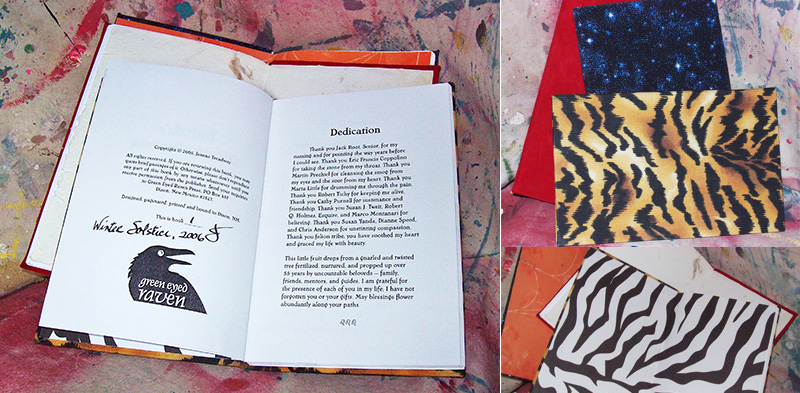 Copyright © 2006, Jerome Treadway
All rights reserved. If you are reviewing this book, you may
quote brief passages in it. Otherwise please don't reproduce
any part of this book by any means whatever until you
receive permission from the publisher. Send your requests
to Green Eyed Raven Press
Dixon, New Mexico 87527.
Designed, paginated, printed and bound in Dixon, NM.
This is book 1
Winter Solstice, 2006
green eyed
raven
Dedication
Thank you Jack Root, Senior, for my
naming and for pointing the way years before
I could see. Thank you Eric Francis Coppolino
for taking the stone from my throat. Thank you
Martín Prechtel for cleansing the smog from
my eyes and the soot from my heart. Thank you
Maria Little for drumming me through the pain.
Thank you Robert Tichy for keeping me alive.
Thank you Cathy Purnell for sustenance and
friendship. Thank you Susan J. Tweit, Robert
Q. Holmes, Esquire, and Marco Montanari for
believing. Thank you Susan Yanda, Dianne Speed,
and Chris Anderson for unstinting compassion.
Thank you feltion tribe, you have soothed my heart
and graced my life with beauty.
This little fruit drops from a gnarled and twisted
tree fertilized, nurtured, and propped up over
55 years by uncountable beloveds – family,
friends, mentors, and guides. I am grateful for
the presence of each of you in my life. I have not
forgotten you or your gifts. May blessings flower
abundantly along your paths.